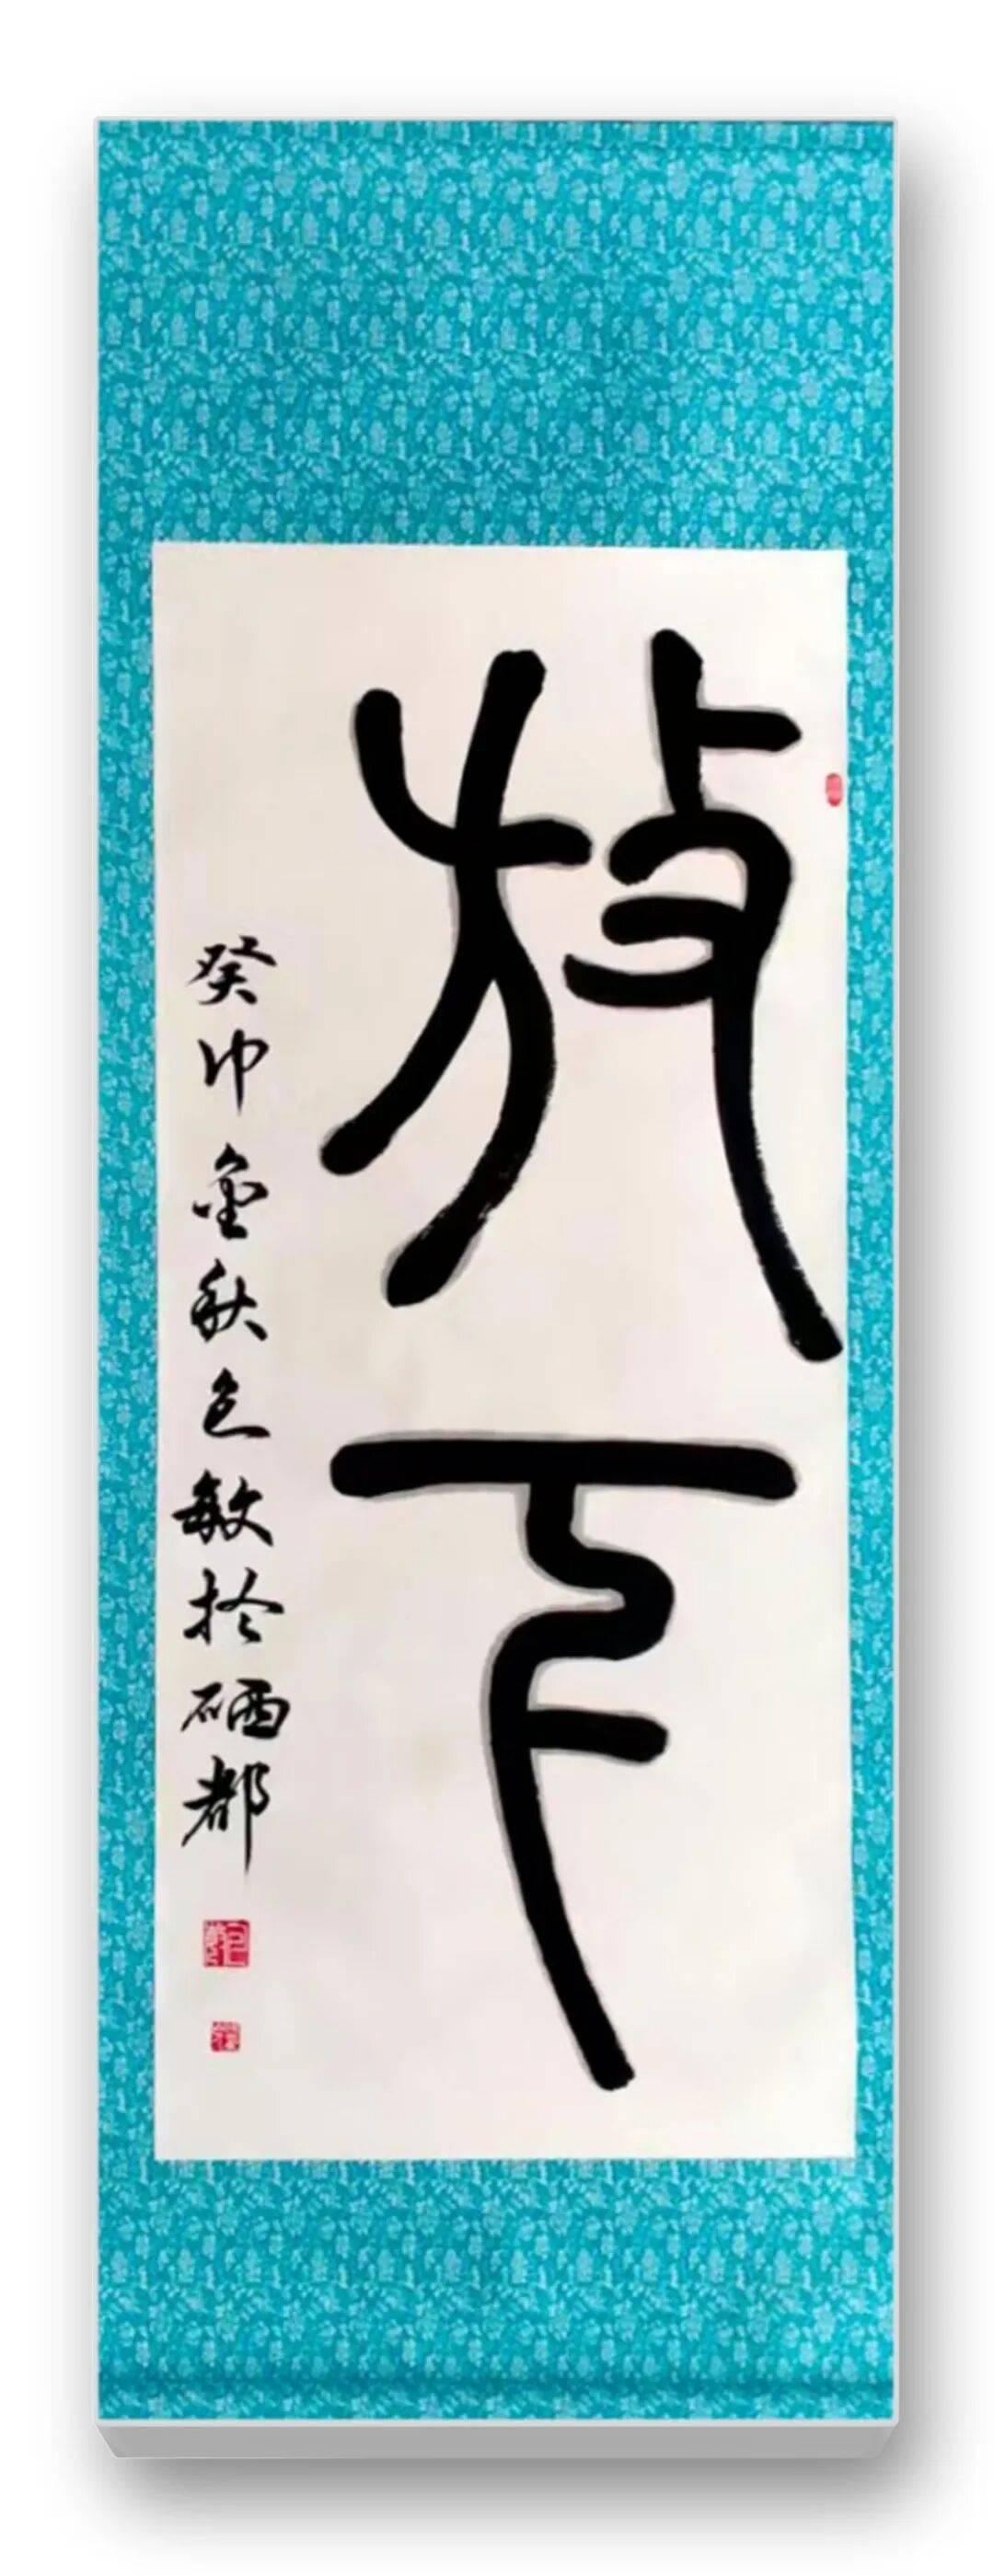 放下
癸卯金秋包敏於硒都